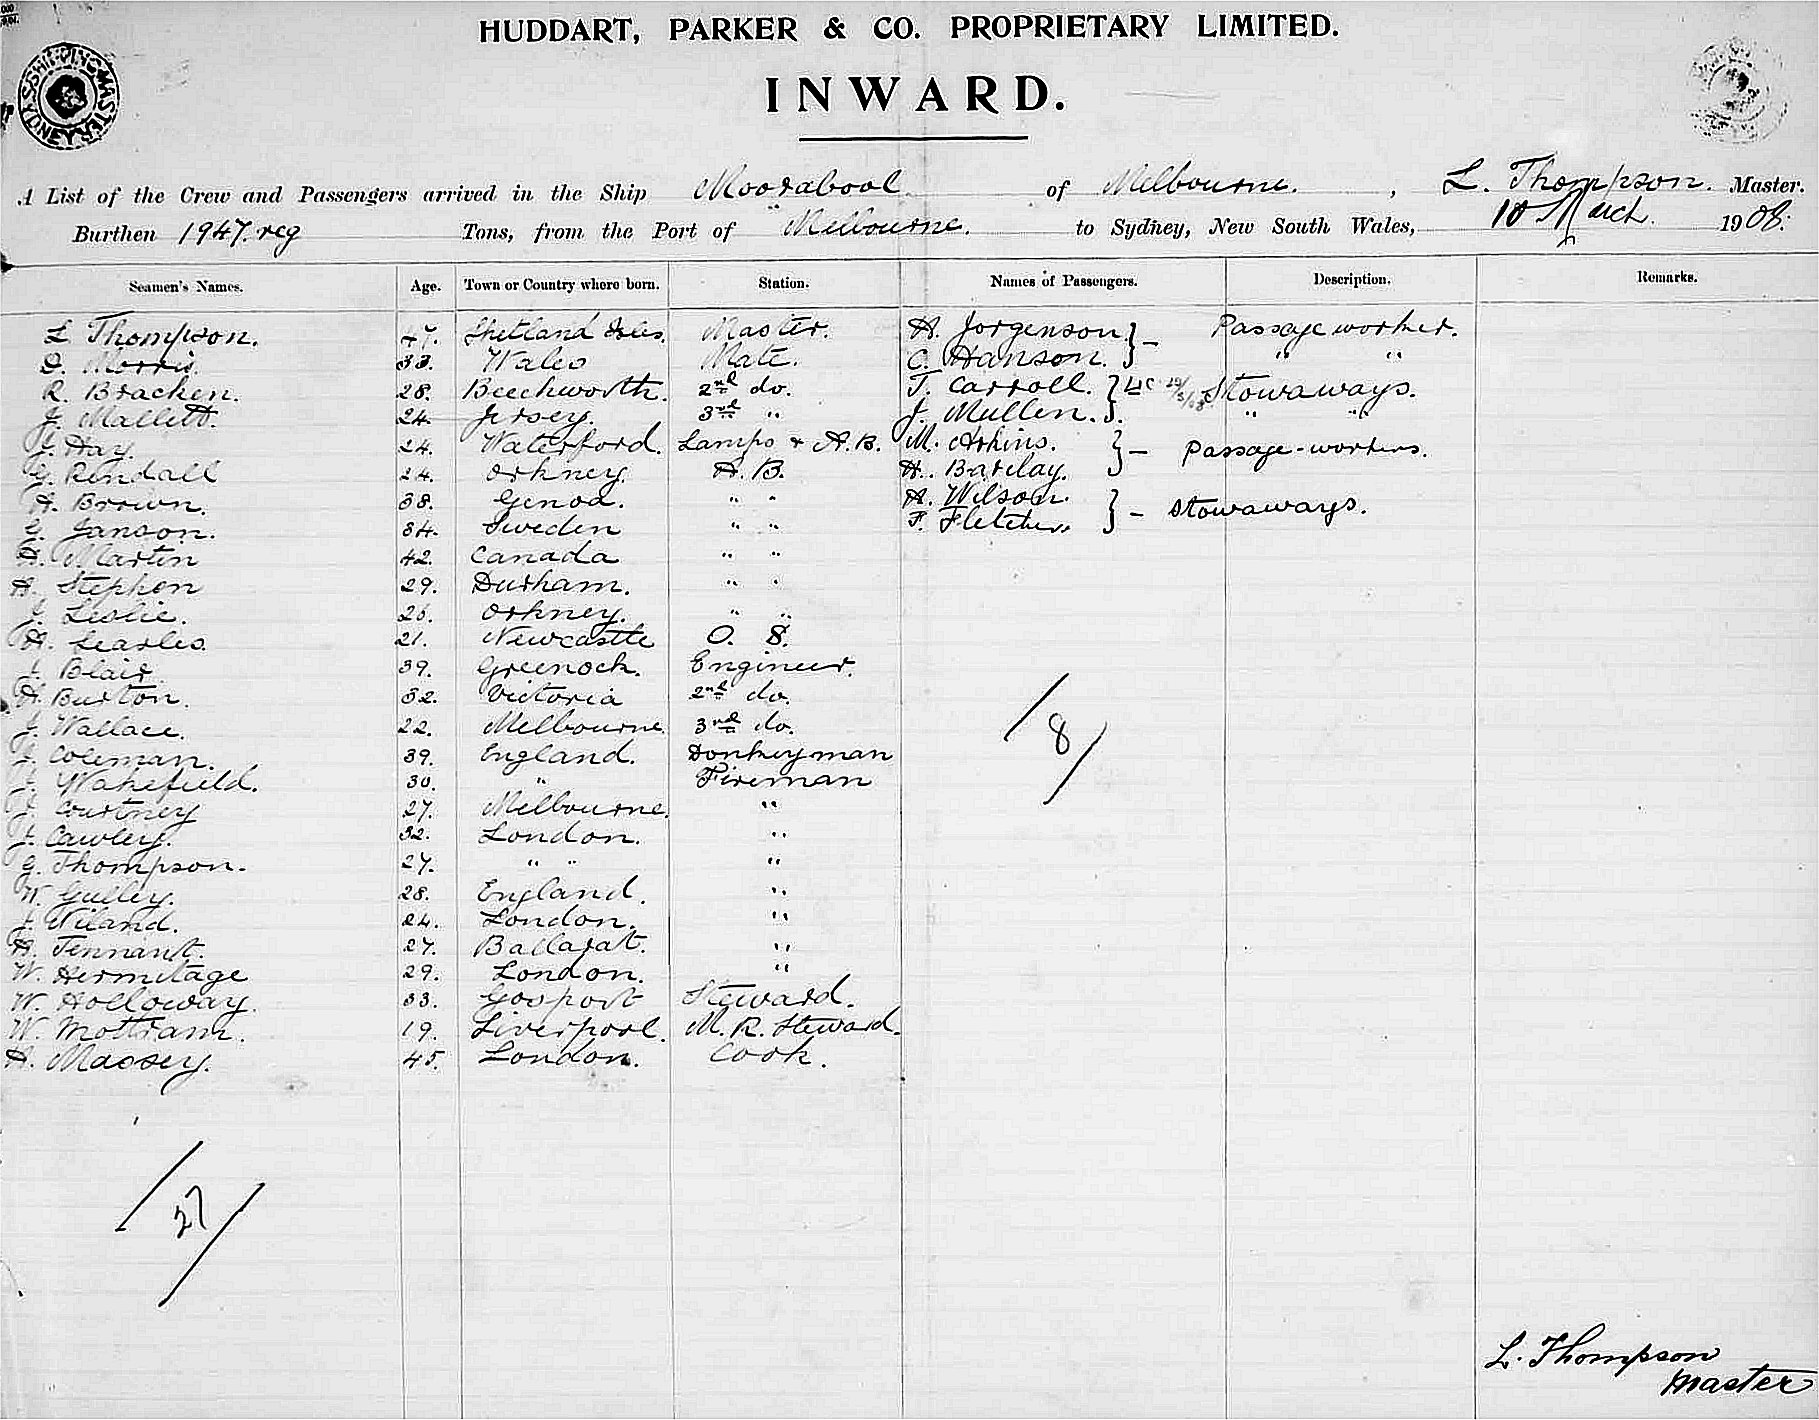 HUDDART, PARKER & CO. PROPRIETARY LIMITED.
INWARD.
A List of the Crew and Passengers arrived in the Ship Moorabool of Melbourne. , L. Thompson. Master.
Burthen 1947. reg Tons, from the Port of Melbourne. to Sydney, New South Wales, 10 March. 1908.
Seamen's Names. Age. Town or Country where born. Station. Names of Passengers. Description. Remarks.
L Thompson. 47. Shetland Isles. Master. A. Jorgenson } - Passage worker.
D. Morris. 33. Wales Mate. C. Hanson. " "
R. Bracken. 28. Beechworth. 2nd do. T. Carroll. } Stowaways.
J. Mallett. 24. Jersey. 3rd " J. Mullen. " "
J. Hay. 24. Waterford. Lamps & A.B. M. Atkins. } - Passage-workers.
G. Rendall 24. Orkney. A.B. H. Barclay.
A. Brown. 38. Genoa. " " A. Wilson. } - Stowaways.
G. Janson. 34. Sweden " " F. Fletcher
A. Martin 42. Canada " "
A. Stephen 29. Durham. " "
J. Leslie. 26. Orkney. " "
H. Searles. 21. Newcastle O. S.
J. Blair. 39. Greenock. Engineer.
A. Burton. 32. Victoria 2nd do.
J. Wallace. 22. Melbourne. 3rd do.
J. Coleman. 39. England. Donkeyman
J. Wakefield. 30. " Fireman
J. Courtney 27. Melbourne. "
J. Cawley. 32. London. "
G. Thompson. 27. " " "
W. Gulley. 28. England. "
J. Niland. 24. London. "
H. Tennant. 27. Ballarat. "
W. Hermitage 29. London. "
W. Holloway. 33. Gosport Steward.
W. Mottram. 19. Liverpool. M. R. Steward.
H. Massey. 45. London. Cook.
8
27
L. Thompson
Master